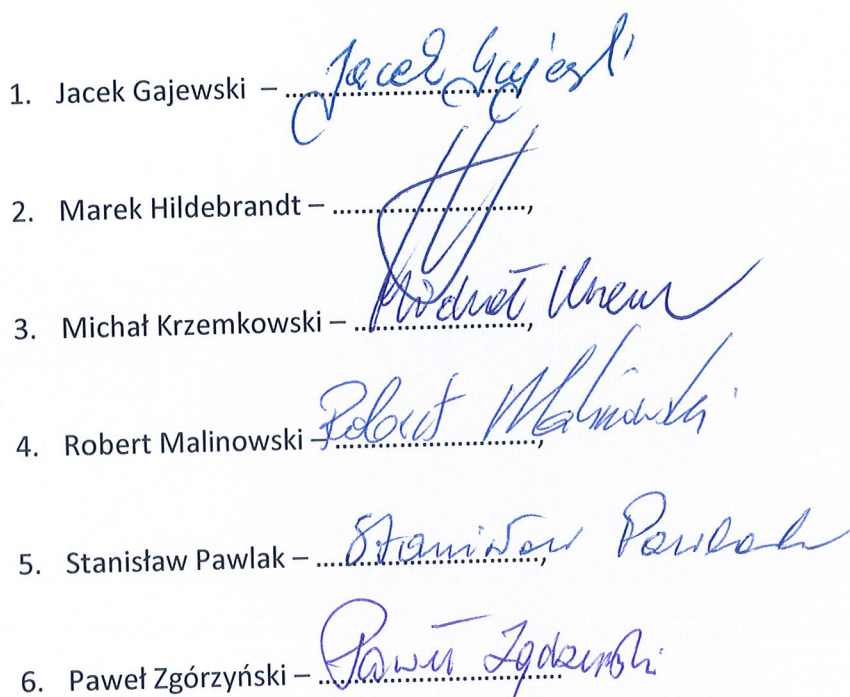 1. Jacek Gajewski – ........................ Jacek Gajewski
2. Marek Hildebrandt – ........................,
3. Michał Krzemkowski – ........................, Michał
4. Robert Malinowski – ........................, Robert Malinowski
5. Stanisław Pawlak – ........................, Stanisław Pawlak
6. Paweł Zgórzyński – ........................ Paweł